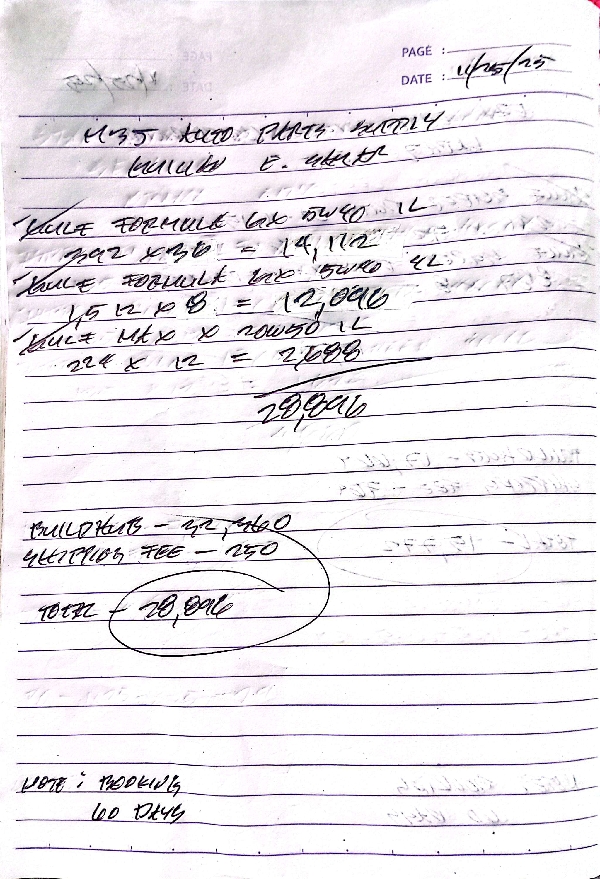 PAGE :
DATE : 11/25/25
H3J AUTO PARTS SUPPLY
E.
KULZ FORMULA GX 5W40 1L
392 x 36 = 14,112
KULZ FORMULA GX 5W40 4L
1,512 x 8 = 12,096
KULZ MAX X 20W50 1L
224 x 12 = 2,688
28,896
BUILDHUB - 32,360
SHIPPING FEE - 250
TOTAL - 28,896
NOTE : BOOKING
60 DAYS